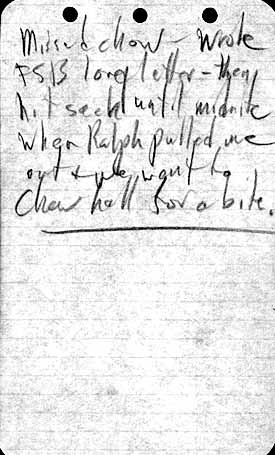 Missed chow - wrote
FSB long letter - then
hit sack until midnite
when Ralph pulled me
out & we went to
Chow hall for a bite.